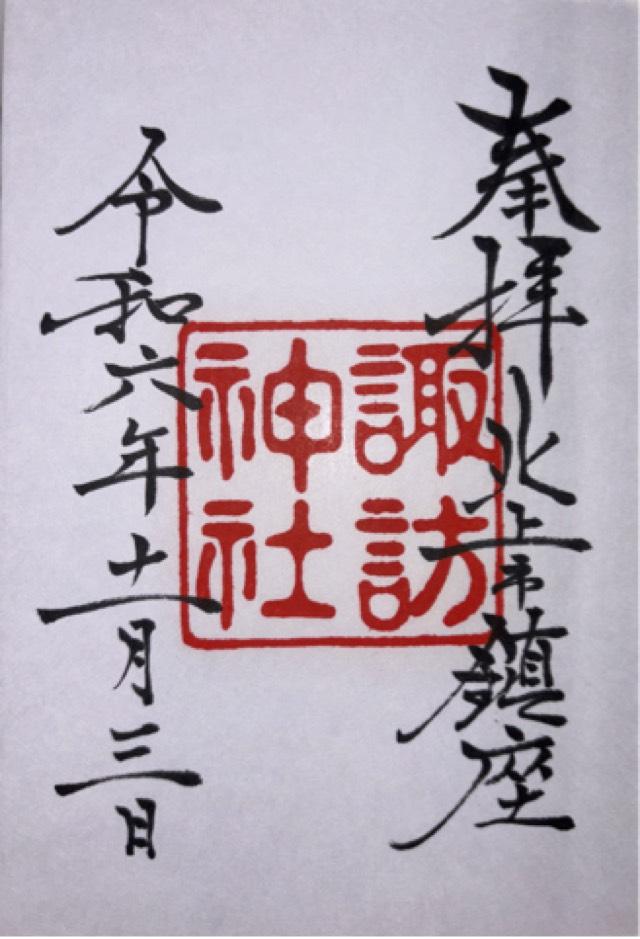 奉拝 北上市鎮座
諏訪
神社
令和六年十一月三日